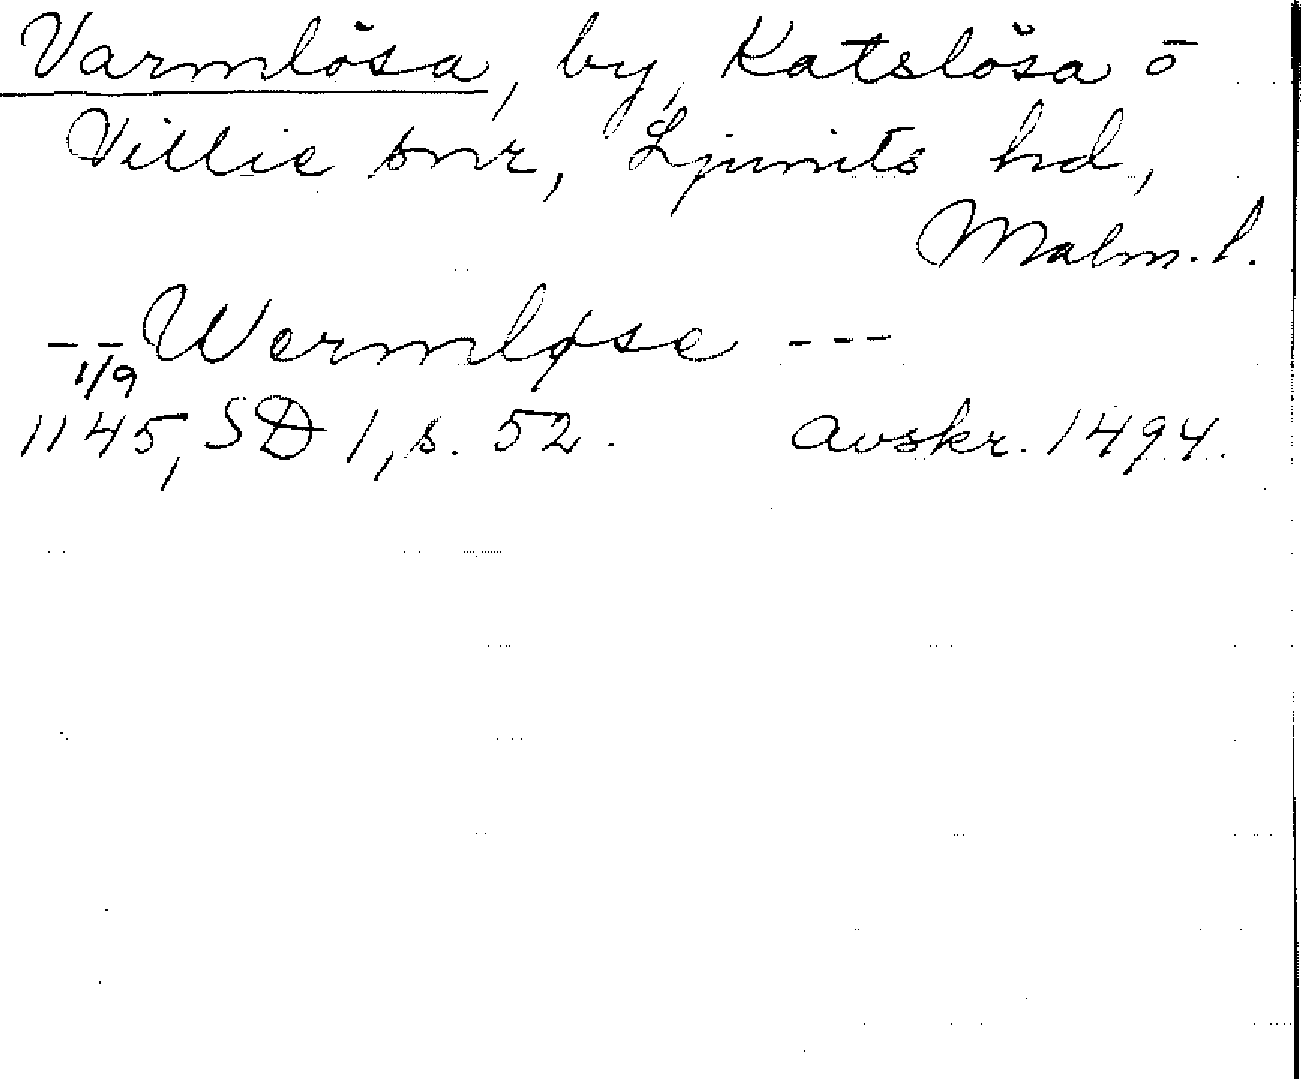 Varmlösa, by, Katslösa o
Villie snr, Ljunits hd,
Malm. l.
-- Wermløse ---
1/9
1145, SD 1, s. 52. avskr. 1494.